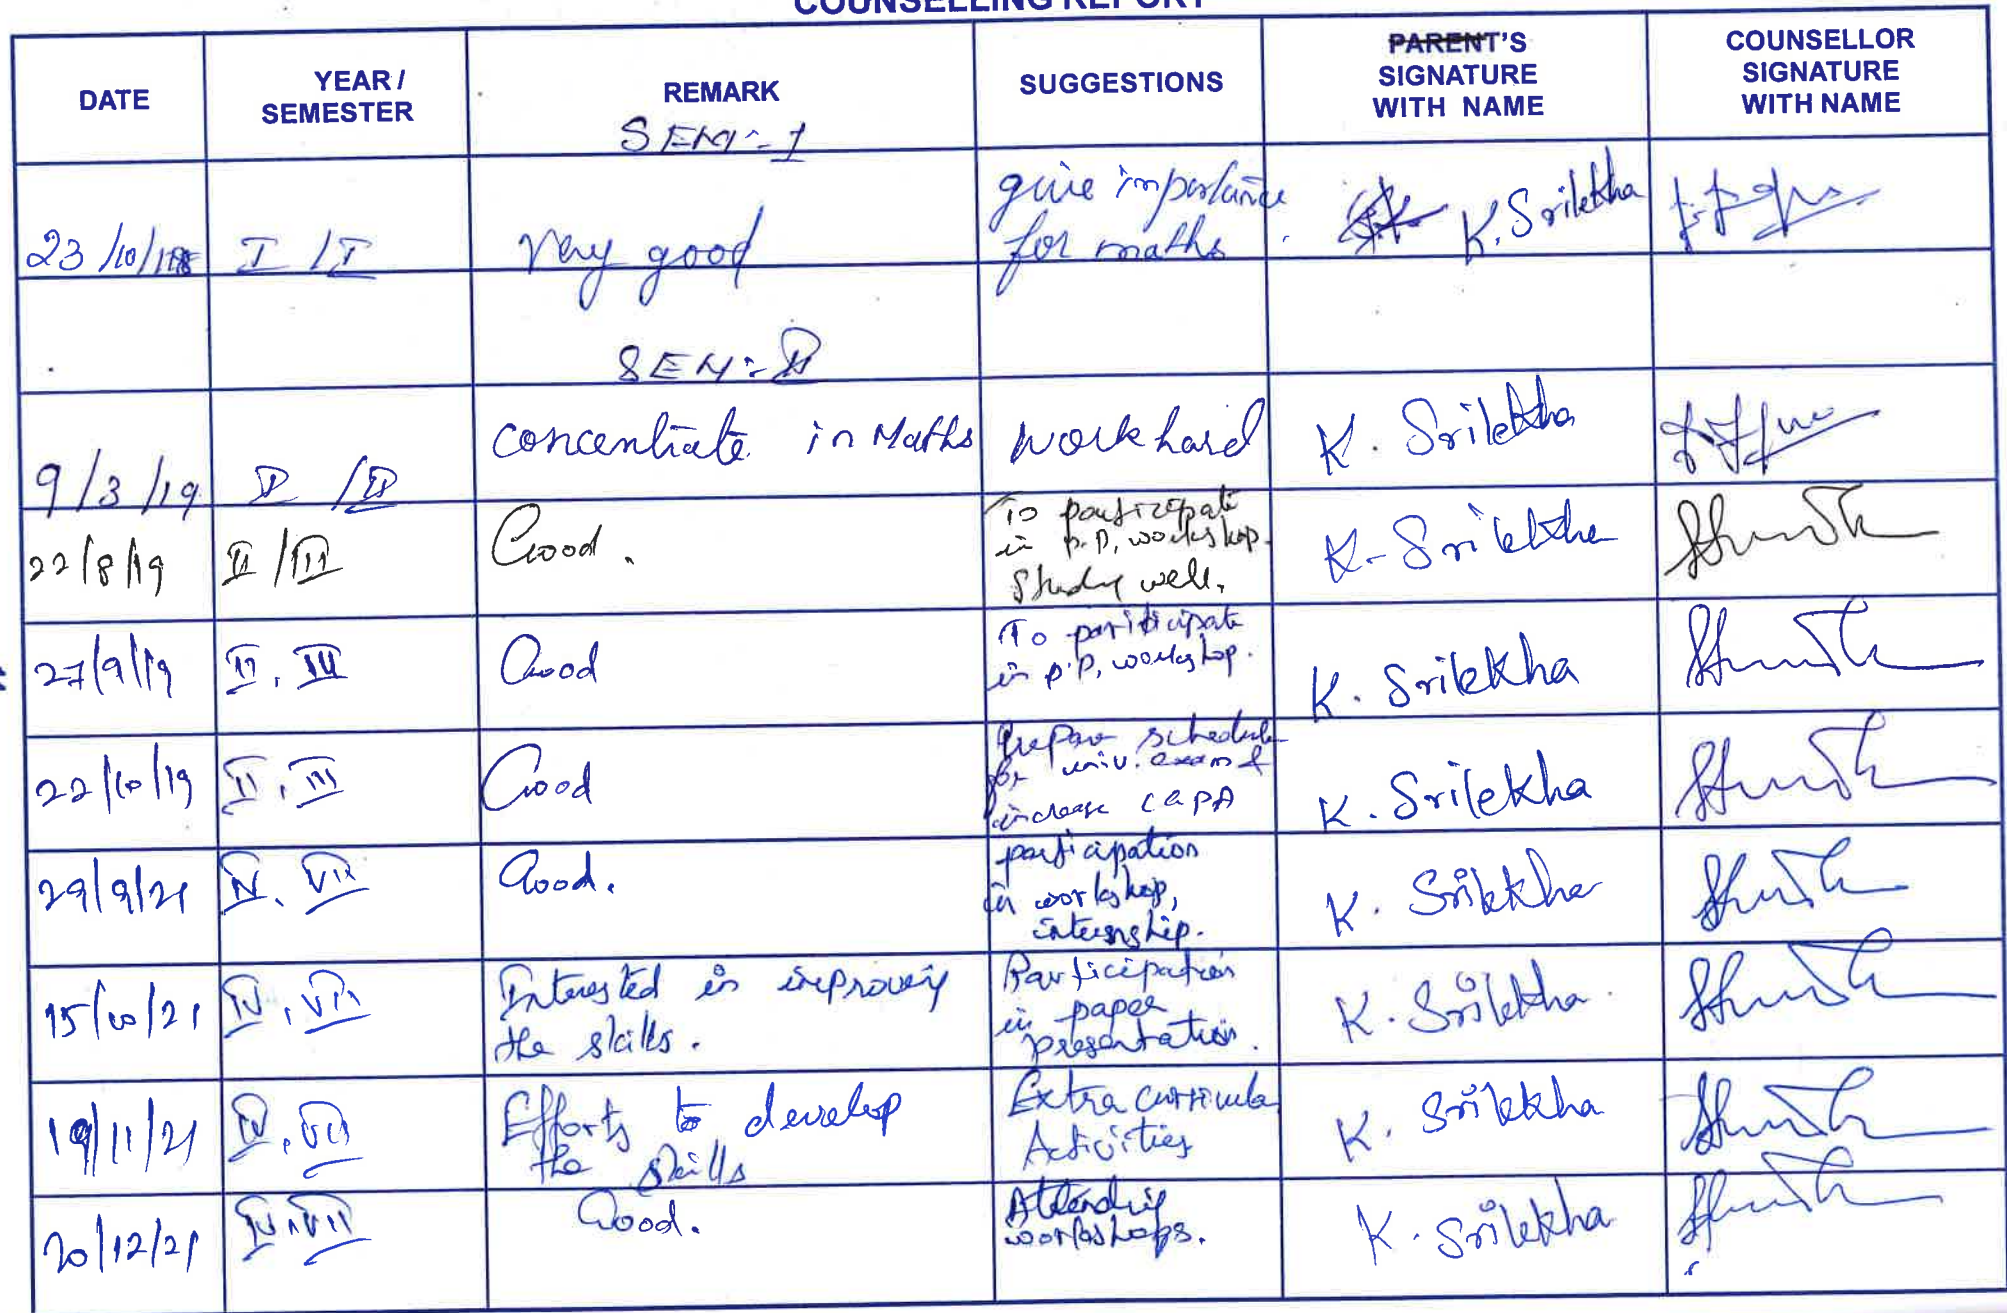 COUNSELLING REPORT
DATE
YEAR /
SEMESTER
REMARK
SUGGESTIONS
PARENT'S
SIGNATURE
WITH NAME
COUNSELLOR
SIGNATURE
WITH NAME
SEM:-I
23/10/18
I / I
Very good
give importance
for maths
K. Srilekha
SEM:-II
9/3/19
II / II
concentrate in Maths
Work hard
K. Srilekha
22/8/19
II / III
Good.
To participate
in P.P, workshop.
Study well.
K. Srilekha
27/9/19
II, III
Good
To participate
in P.P, workshop.
K. Srilekha
22/10/19
II, III
Good
Prepare schedule
for univ. exam &
increase CGPA
K. Srilekha
29/9/21
IV, VII
Good.
participation
in workshop,
internship.
K. Srilekha
15/10/21
IV, VII
Interested in improving
the skills.
Participation
in paper
presentation.
K. Srilekha
19/11/21
IV, VII
Efforts to develop
the skills
Extra curricular
Activities
K. Srilekha
20/12/21
IV, VII
Good.
Attending
workshops.
K. Srilekha